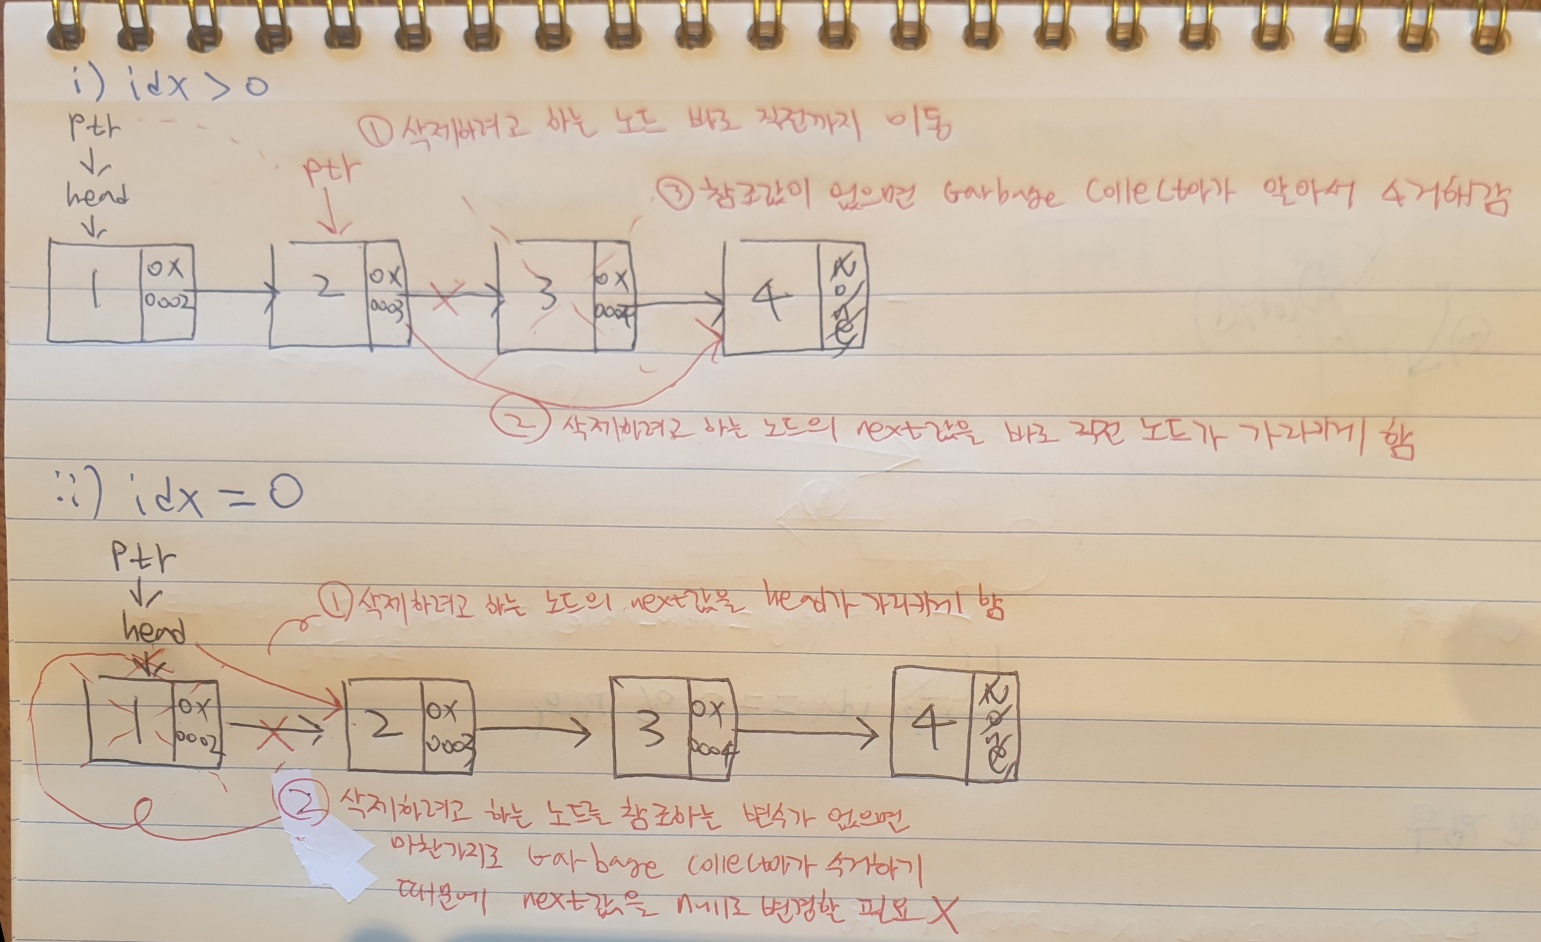 i) idx > 0
ptr
① 삭제하려고 하는 노드 바로 직전까지 이동
ptr
③ 참조값이 없으면 Garbage Collector가 알아서 수거해감
head
1 0X 0002
2 0X 0003
3 0X 0004
4 None
② 삭제하려고 하는 노드의 next값을 바로 직전 노드가 가리키게 함
ii) idx = 0
ptr
① 삭제하려고 하는 노드의 next값을 head가 가리키게 함
head
1 0X 0002
2 0X 0003
3 0X 0004
4 None
② 삭제하려고 하는 노드를 참조하는 변수가 없으면
마찬가지로 Garbage Collector가 수거하기
때문에 next값을 변경할 필요 X